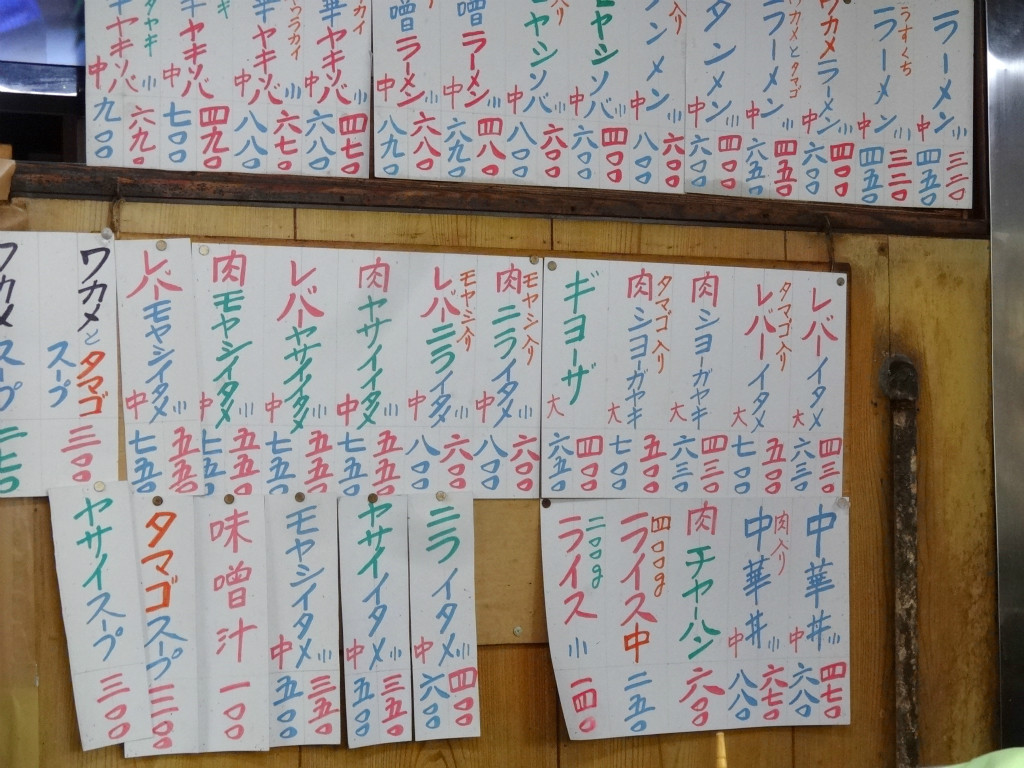 ラーメン 小 三二〇 中 四五〇
うすくち ラーメン 小 三二〇 中 四五〇
ワカメラーメン 小 四〇〇 中 六〇〇
ワカメとタマゴ ラーメン 小 四五〇 中 六五〇
タンメン 小 四〇〇 中 六〇〇
入り ンメン 小 六〇〇 中 八〇〇
モヤシソバ 小 四〇〇 中 六〇〇
入り モヤシソバ 小 六〇〇 中 八〇〇
噌ラーメン 小 四八〇 中 六九〇
噌ラーメン 小 六八〇 中 八九〇
カイ ヤキソバ 小 四七〇 中 六八〇
ヤキソバ 小 六七〇 中 八八〇
ヤキソバ 小 四九〇 中 七〇〇
ヤキソバ 小 六九〇 中 九〇〇
レバーイタメ 四三〇 大 六三〇
タマゴ入り レバーイタメ 五〇〇 大 七〇〇
肉シヨーガヤキ 四三〇 大 六三〇
タマゴ入り 肉シヨーガヤキ 五〇〇 大 七〇〇
ギヨーザ 四〇〇 大 六五〇
モヤシ入り 肉ニライタメ 小 六〇〇 中 八〇〇
モヤシ入り レバーニライタメ 小 六〇〇 中 八〇〇
肉ヤサイイタメ 小 五五〇 中 七五〇
レバーヤサイイタメ 小 五五〇 中 七五〇
肉モヤシイタメ 小 五五〇 中 七五〇
レバーモヤシイタメ 小 五五〇 中 七五〇
ワカメとタマゴスープ 三〇〇
ワカメスープ 二七〇
中華丼 小 四七〇 中 六八〇
肉入り 中華丼 小 六七〇 中 八八〇
肉チャーハン 六八〇
四〇〇g ライス中 二五〇
二〇〇g ライス 小 一四〇
ニライタメ 小 四〇〇 中 六〇〇
ヤサイイタメ 小 三五〇 中 五五〇
モヤシイタメ 小 三五〇 中 五五〇
味噌汁 一〇〇
タマゴスープ 二二〇
ヤサイスープ 三〇〇